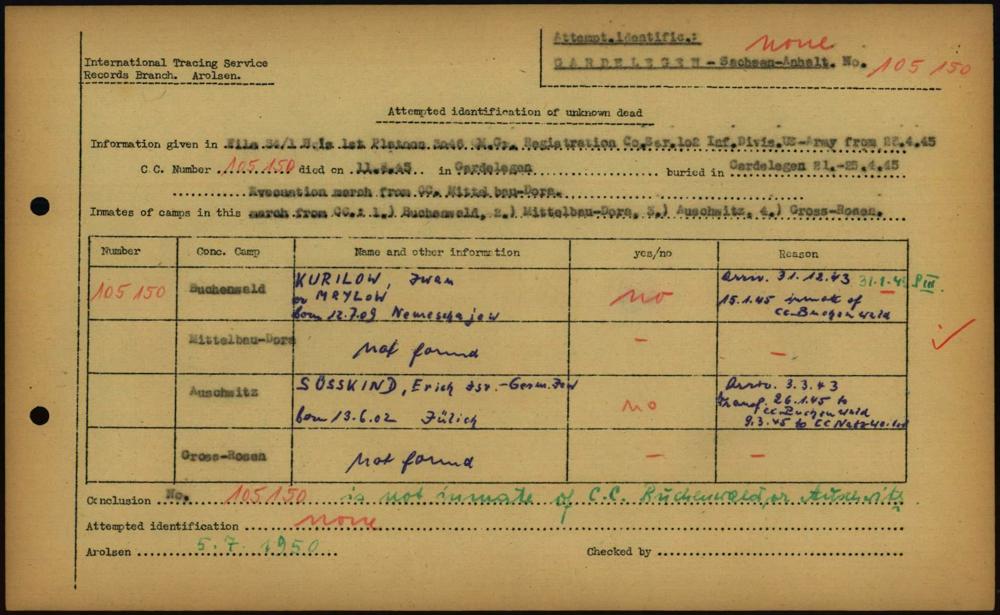 Attempt.identific.: none
International Tracing Service
GARDELEGEN - Sachsen-Anhalt. No. 105 150
Records Branch. Arolsen.
Attempted identification of unknown dead
Information given in File 54/1 1st Platoon 3046 Q.M.Gr. Registration Co.Ser.102 Inf.Divis.US-Army from 25.4.45
C.C. Number 105150 died on 11.3.45 in Gardelegen buried in Gardelegen 21.-25.4.45
Evacuation march from CC. Mittelbau-Dora.
Inmates of camps in this march from CC.: 1.) Buchenwald, 2.) Mittelbau-Dora, 3.) Auschwitz, 4.) Gross-Rosen.
Number Conc. Camp Name and other information yes/no Reason
105150 Buchenwald KURILOW, Iwan no Arrv. 31.12.43 31.1.45 PIII.
or MRYLOW 15.1.45 inmate of
born 12.7.09 Nemeschajew CC.Buchenwald
Mittelbau-Dora not found - -
Auschwitz SÖSSKIND, Erich Isr.-Germ.Jew no Arrv. 3.3.43
born 13.6.02 Jülich transf. 26.1.45 to
CC Buchenwald
9.3.45 to CC Natzweiler
Gross-Rosen not found - -
Conclusion No. 105150 is not inmate of C.C. Buchenwald, or Auschwitz
Attempted identification none
Arolsen 5.7.1950 Checked by